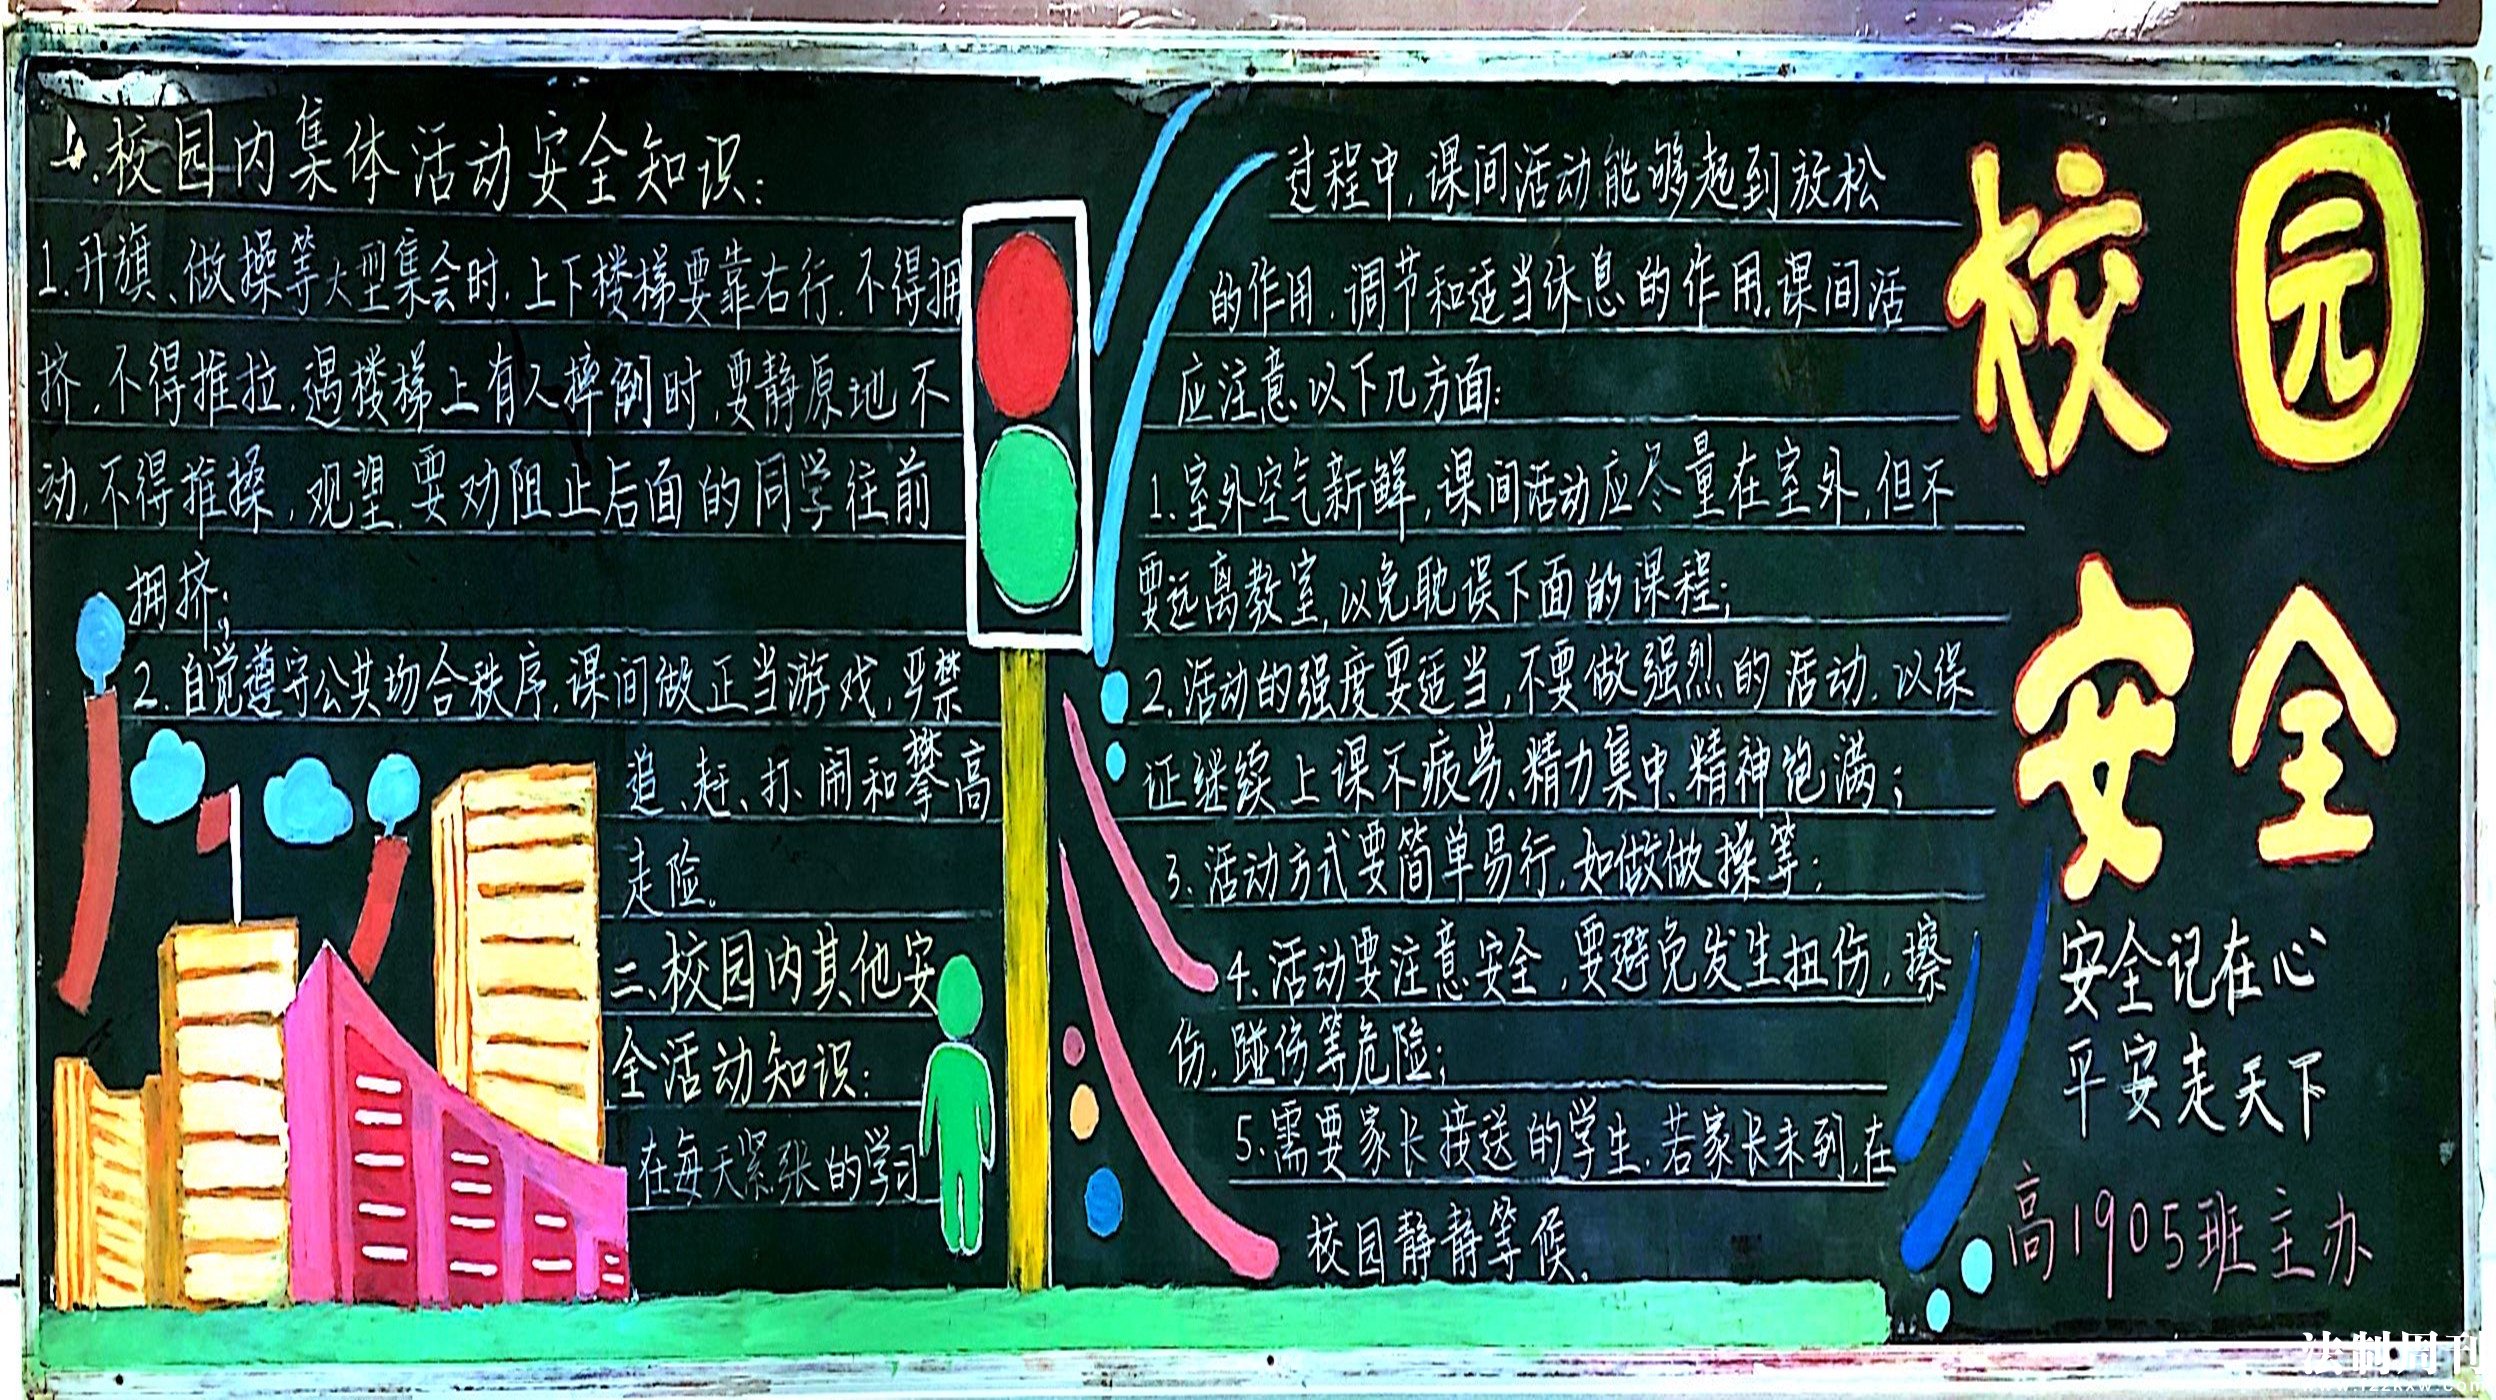 一、校园内集体活动安全知识：
1.升旗、做操等大型集会时，上下楼梯要靠右行，不得拥
挤，不得推拉，遇楼梯上有人摔倒时，要静原地不
动，不得推搡，观望，要劝阻止后面的同学往前
拥挤；
2.自觉遵守公共场合秩序，课间做正当游戏，严禁
追、赶、打、闹和攀高
走险。
二、校园内其他安
全活动知识：
在每天紧张的学习
过程中，课间活动能够起到放松
的作用，调节和适当休息的作用，课间活
应注意以下几方面：
1.室外空气新鲜，课间活动应尽量在室外，但不
要远离教室，以免耽误下面的课程；
2.活动的强度要适当，不要做强烈的活动，以保
证继续上课不疲劳、精力集中、精神饱满；
3.活动方式要简单易行，如做做操等；
4.活动要注意安全，要避免发生扭伤，擦
伤，碰伤等危险；
5.需要家长接送的学生，若家长未到，在
校园静静等候。
校园
安全
安全记在心
平安走天下
高1905班主办
法制周刊